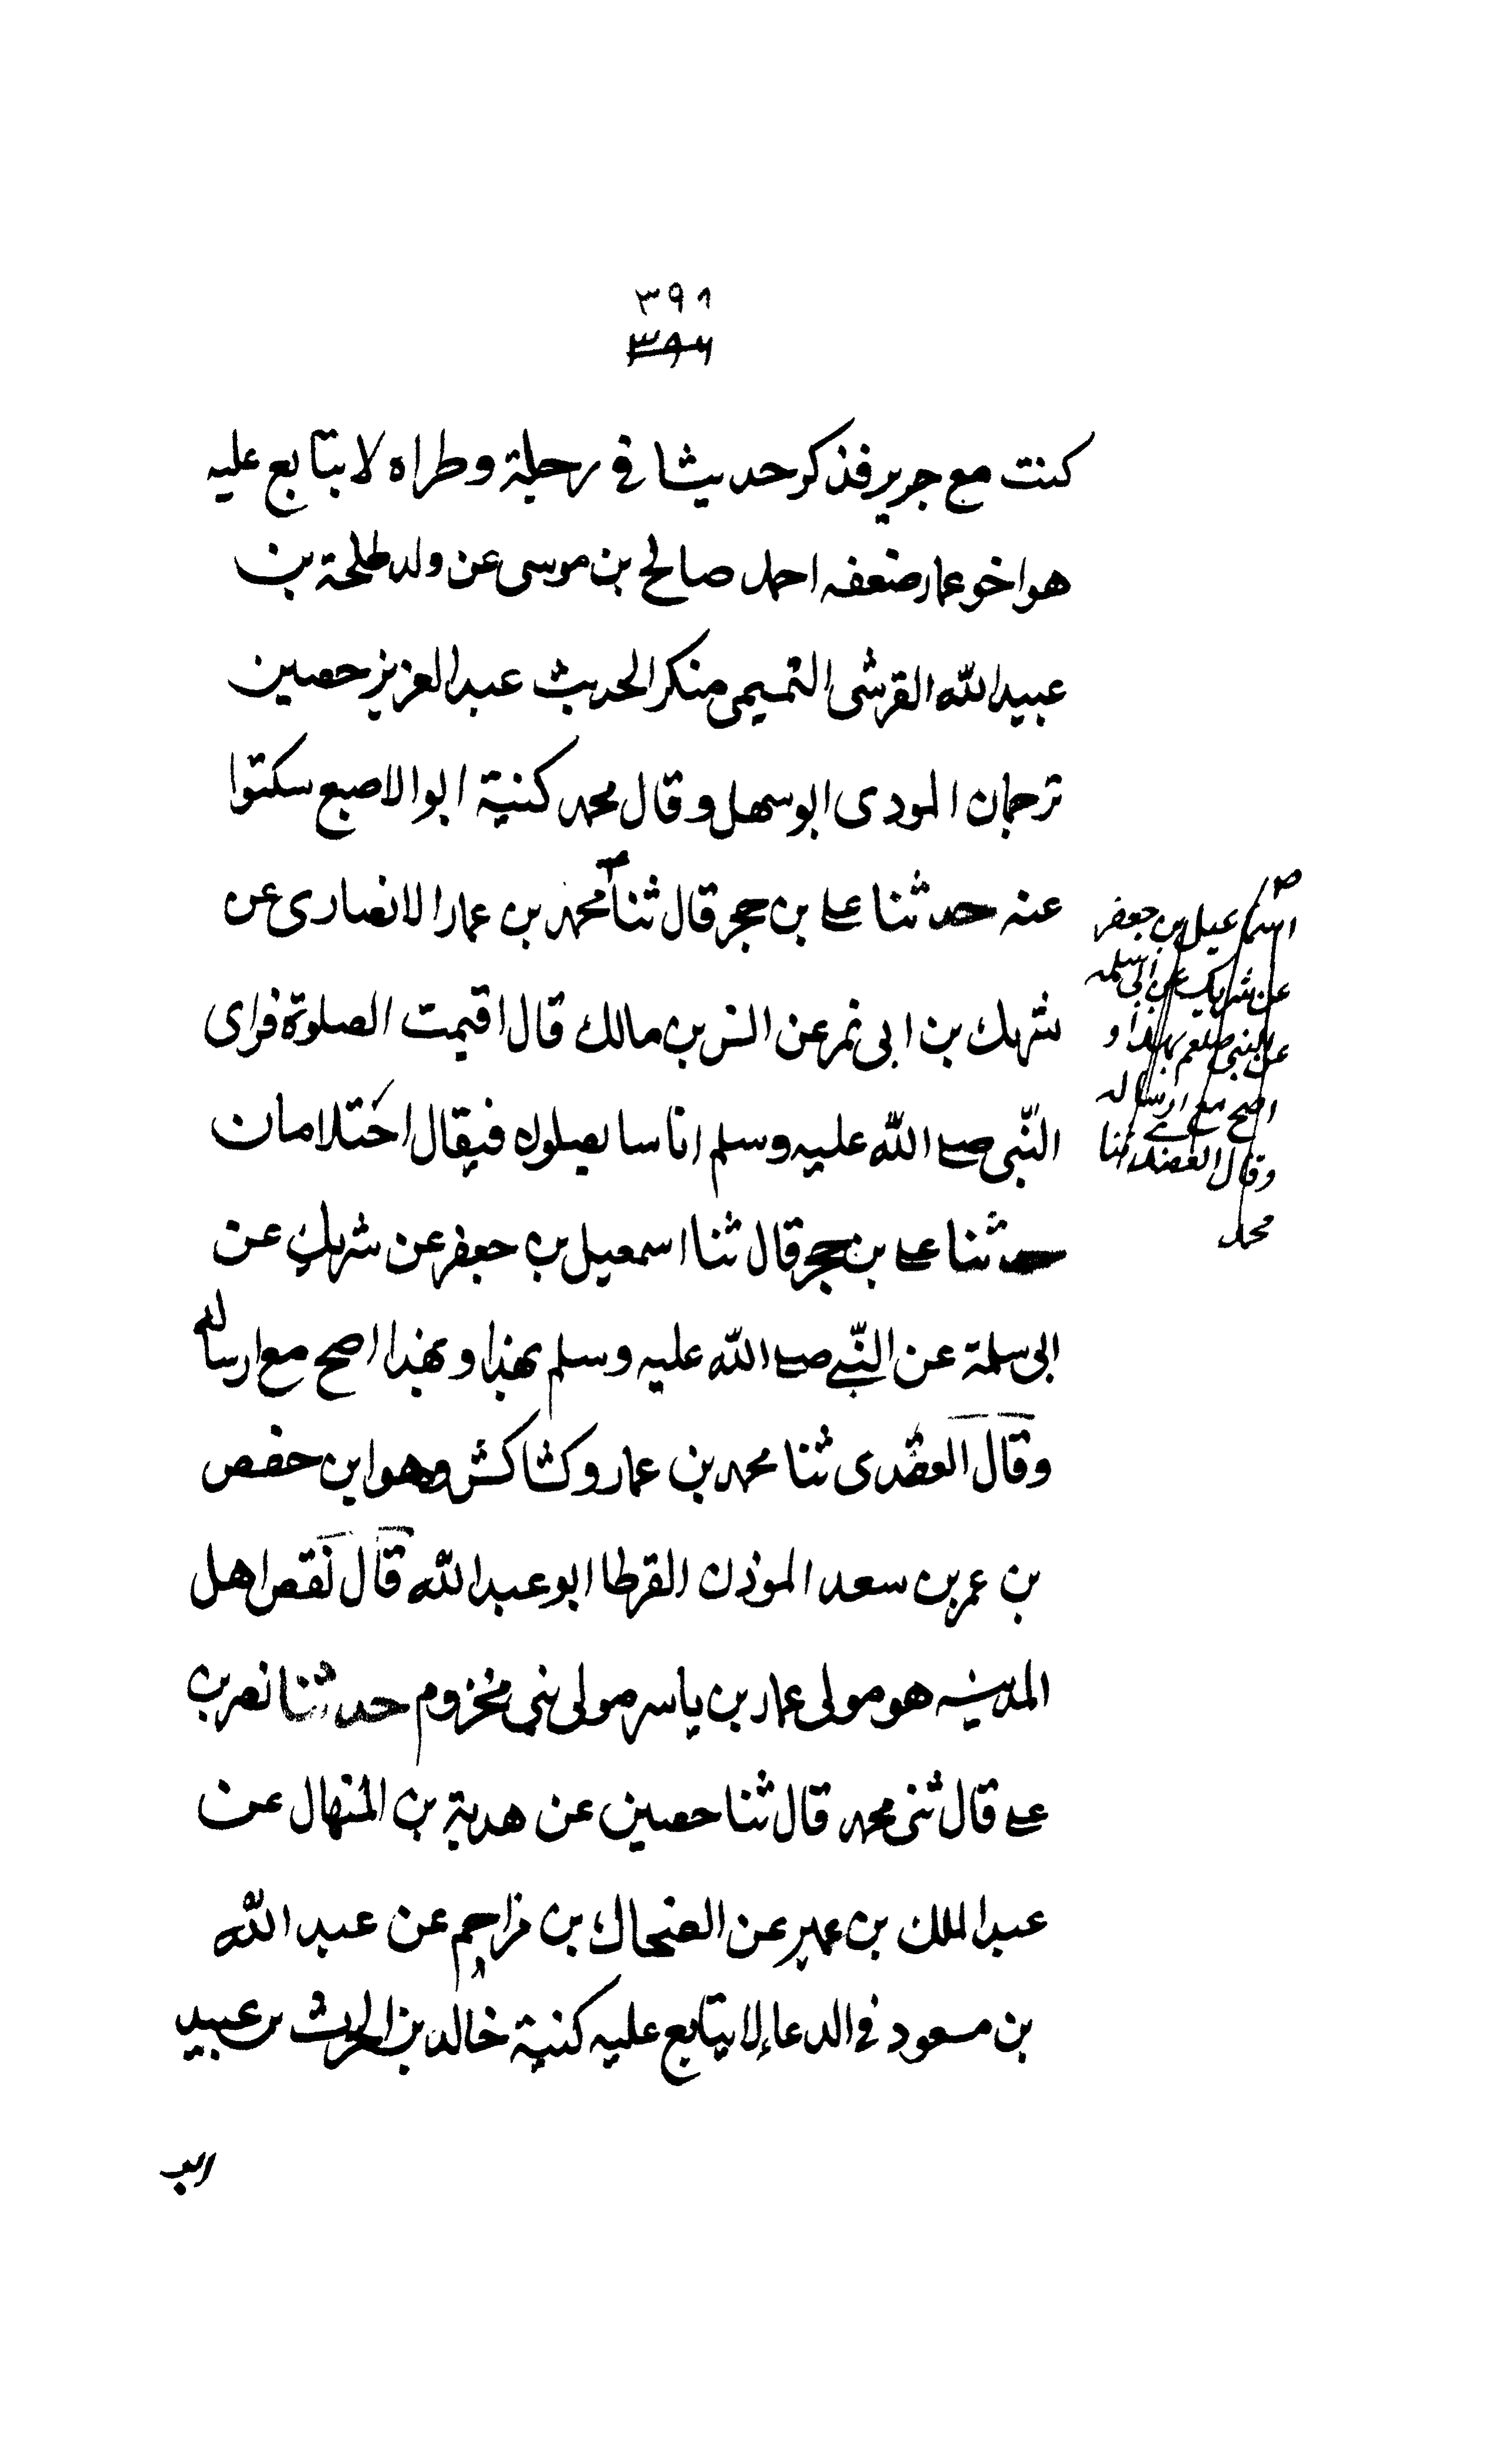 ٣٩٨
٣٩٦
كنت مع جرير فذكر حديثا فى رحلة وطراه لا يتابع عليه
هو اخو عمار ضعفه احمد صالح بن موسى عن ولد طلحة بن
عبيد الله القرشى التميمى منكر الحديث عبد العزيز حصين
ترجمان المودى ابو سهل وقال محمد كنية ابوالاصبع سكتوا
عنه حدثنا على بن حجر قال ثنا محمد بن عمار الانصارى عن
شريك بن ابى نمر عن انس بن مالك قال اقيمت الصلوة فراى
النبى صلى الله عليه وسلم اناسا يصلون فيقال احتلامان
حدثنا على بن حجر قال ثنا اسمعيل بن جعفر عن شريك عن
ابى سلمة عن النبى صلى الله عليه وسلم بهذا وبهذا اصح مع ارساله
وقال العقدى ثنا محمد بن عمار وكشاكش وهو ابن حفص
بن عمر بن سعد الموذن القرظا ابو عبد الله قال نقص اهل
المدينه هو مولى عمار بن ياسر مولى بنى مخزوم حدثنا نصر بن
على قال ثنى محمد قال ثنا حصين عن هدبة بن المنهال عن
عبد الملك بن عمير عن الضحاك بن مزاحم عن عبد الله
بن مسعود فى الدعاء لا يتابع عليه كنية خالد بن الحرث بن عبيد
اسماعيل بن جعفر
عن شريك عن ابى سلمه
عن النبى صلعم بهذا و
اصح مع ارساله
وقال ثنا
محمد